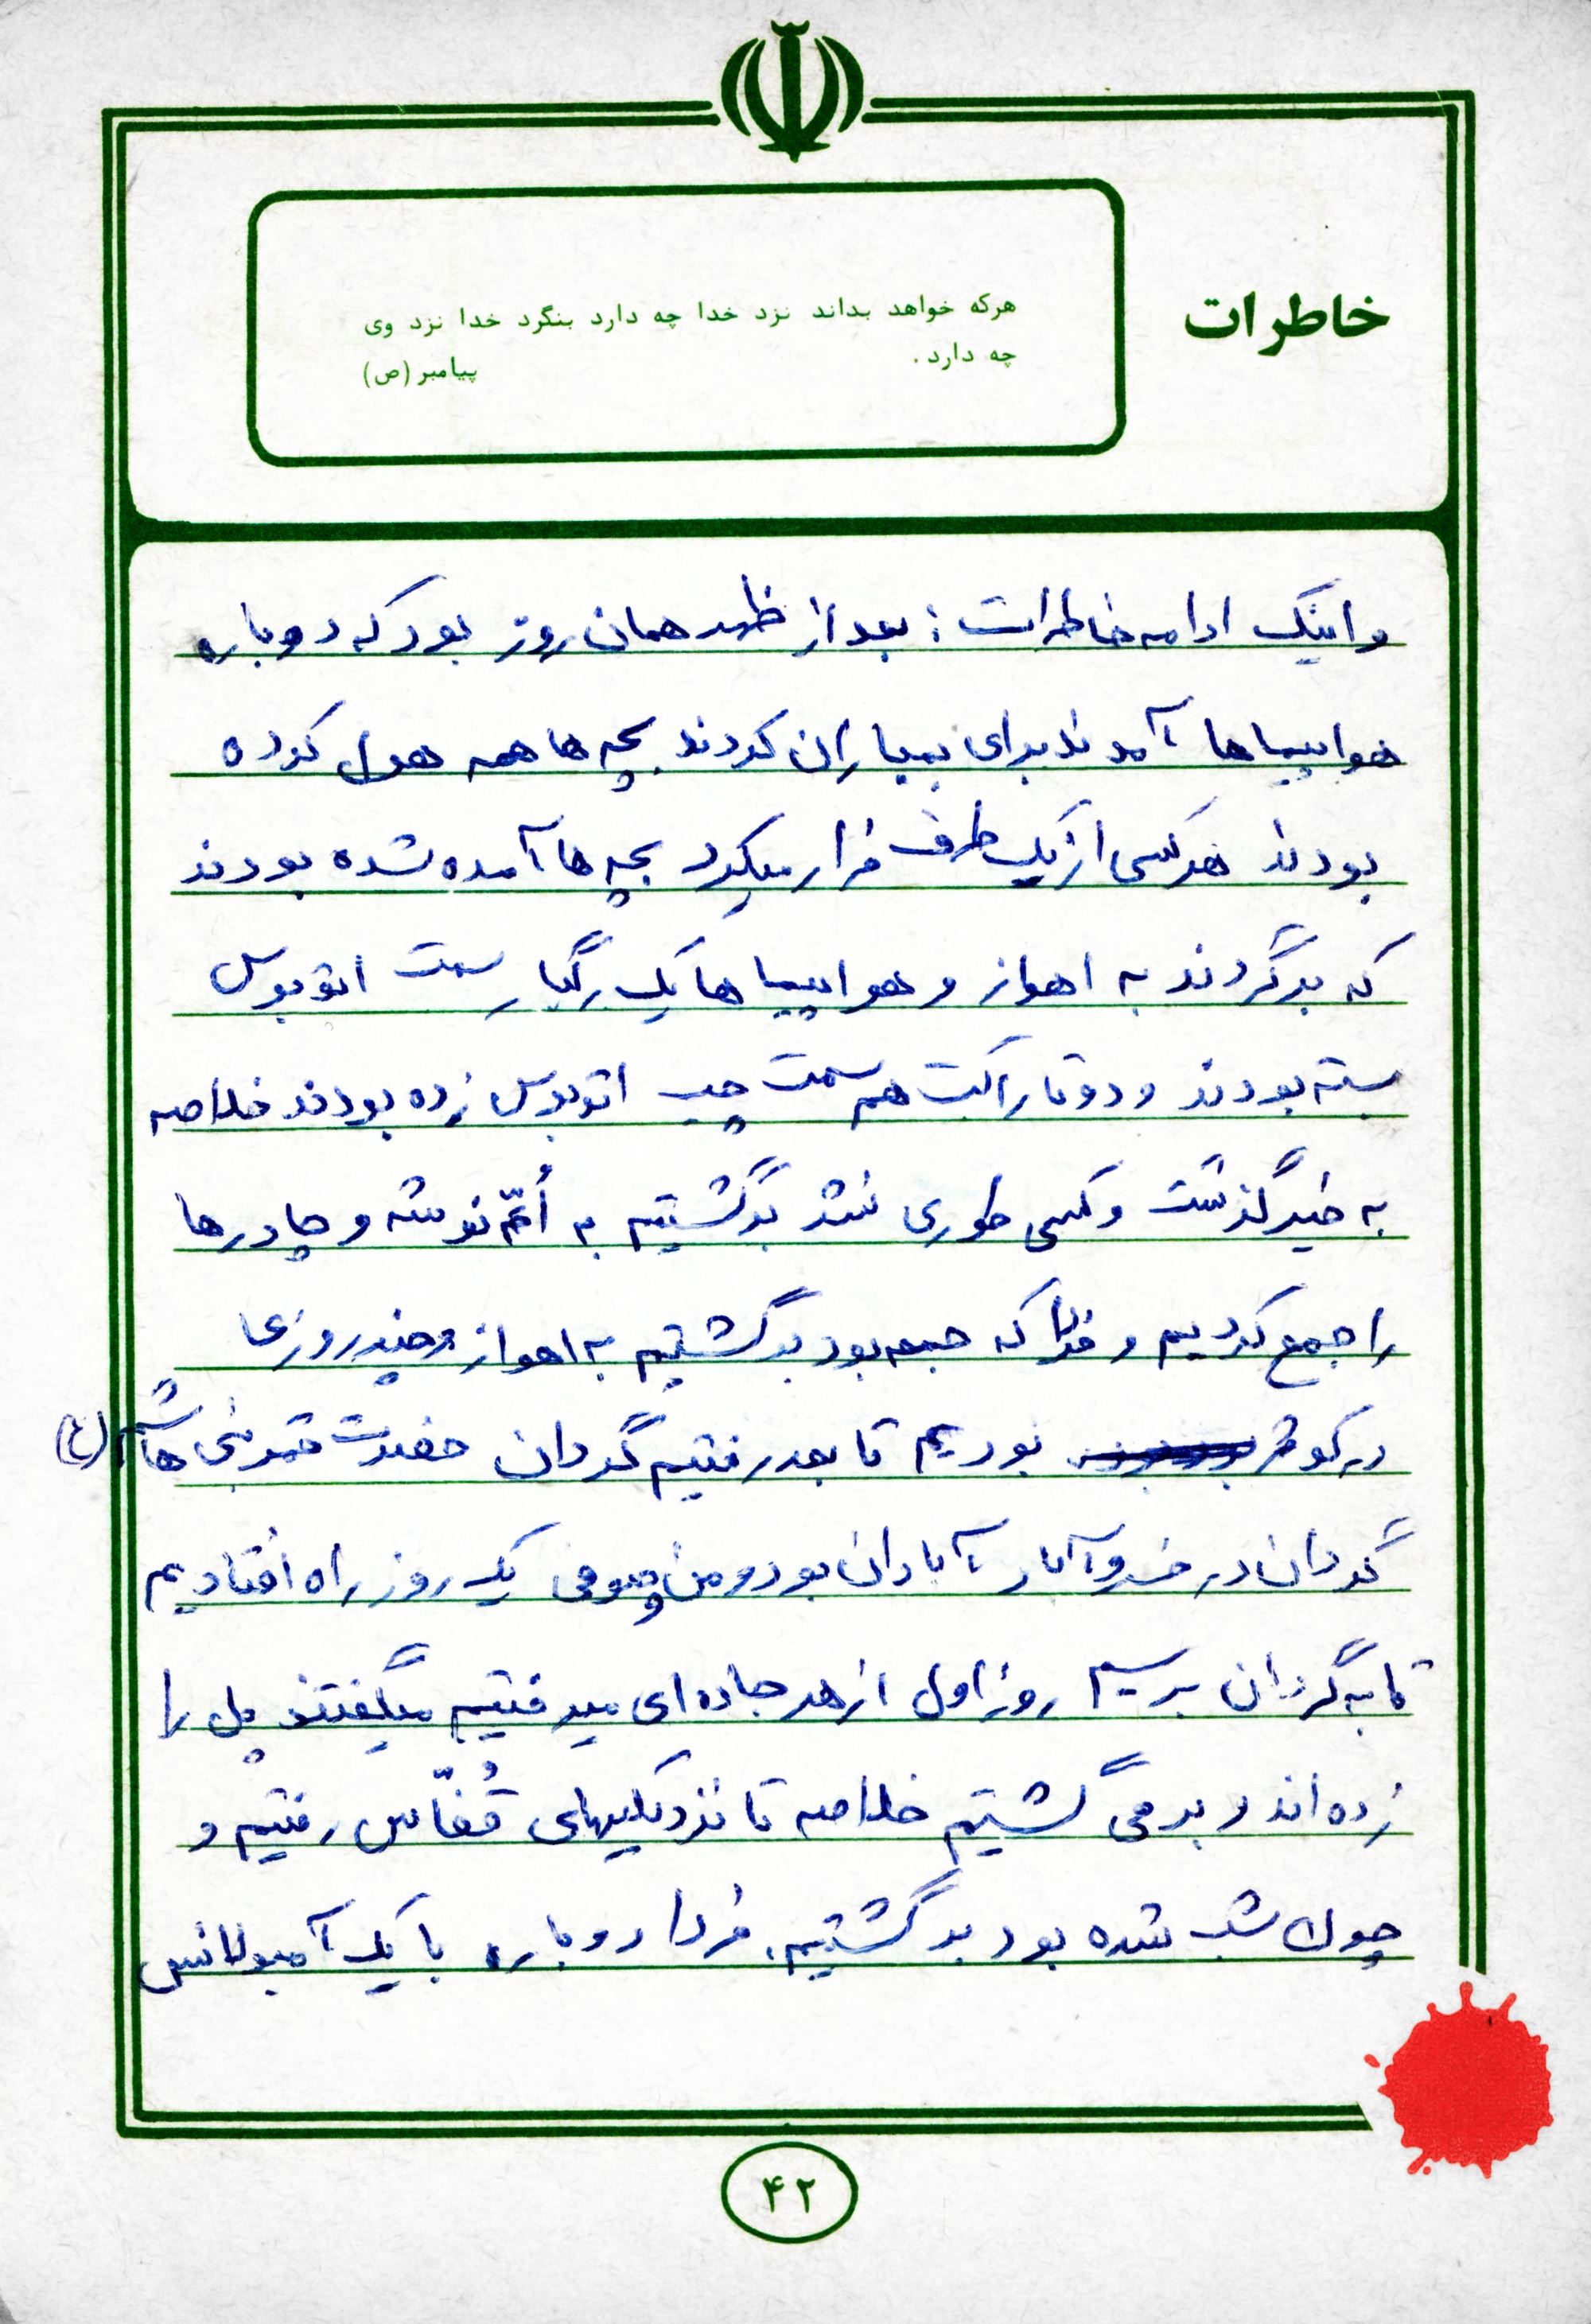 خاطرات
هرکه خواهد بداند نزد خدا چه دارد بنگرد خدا نزد وی
چه دارد.
پیامبر (ص)
و اینک ادامه خاطرات : بعد از ظهر همان روز بود که دوباره
هواپیماها آمدند برای بمباران کردند بچه ها همه هول کرده
بودند هرکسی از یک طرف فرار میکرد بچه ها آمده شده بودند
که برگردند به اهواز و هواپیما ها یک رگبار سمت اتوبوس
بسته بودند و دو تا راکت هم سمت چپ اتوبوس زده بودند خلاصه
به خیر گذشت و کسی طوری نشد برگشتیم به اُمّ نوشه و چادرها
را جمع کردیم و فردا که جمعه بود برگشتیم به اهواز و چند روزی ما
در کوثر بودیم تا بعد رفتیم گردان حضرت قمر بنی هاشم (ع)
گردان در خسروآباد آبادان بود و من و یک روز راه افتادیم
تا به گردان برسیم روز اول از هر جاده ای میرفتیم میگفتند پل را
زده اند و برمی گشتیم خلاصه تا نزدیکیهای قُفّاس رفتیم و
چون شب شده بود برگشتیم. فردا دوباره با یک آمبولانس
۴۲